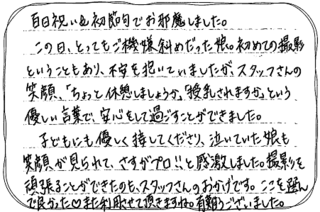 百日祝い&初節句でお邪魔しました。
この日、とってもご機嫌斜めだった娘。初めての撮影
ということもあり、不安を抱いていましたが、スタッフさんの
笑顔、「ちょっと休憩しましょうか。授乳されますか。」という
優しい言葉で、安心をして過ごすことができました。
子どもにも優しく接してくださり、泣いていた娘も
笑顔が見られて、さすがプロ!!と感激しました。撮影を
頑張ることができたのも、スタッフさんのおかげです。ここを選んで
良かった♡また利用させて頂きますね。有難うございました。